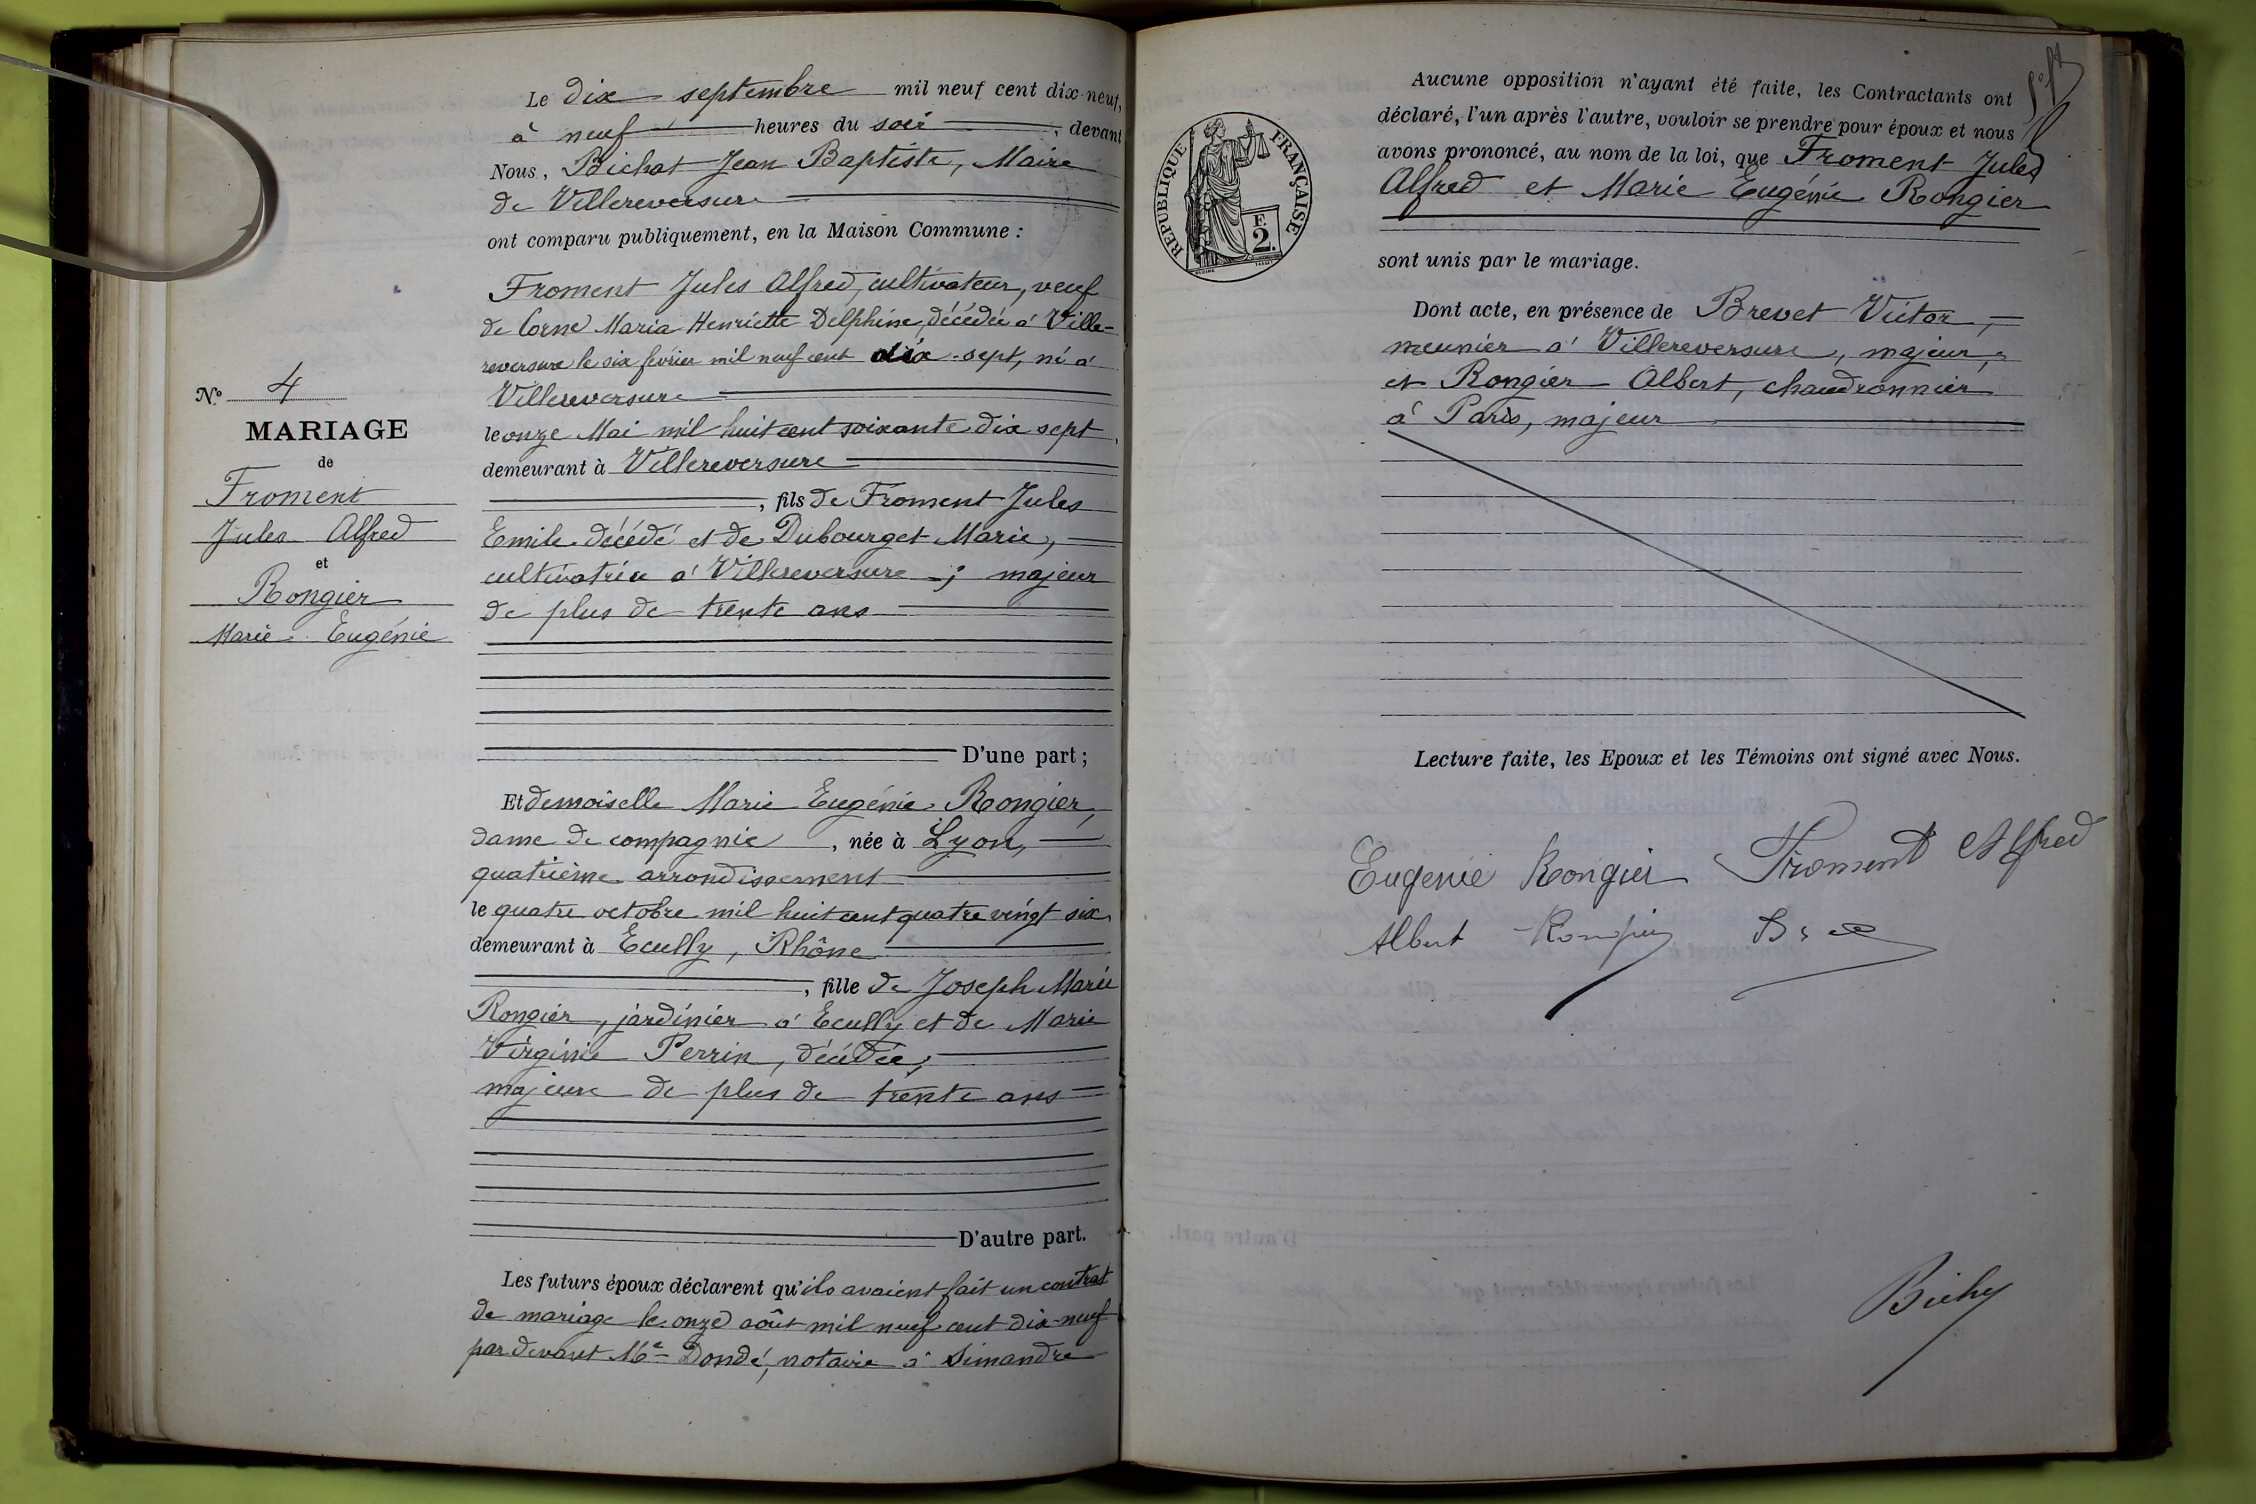 Le dix septembre mil neuf cent dix-neuf,
à neuf heures du soir, devant
Nous, Bichat Jean Baptiste, Maire
de Villereversure
ont comparu publiquement, en la Maison Commune :
Froment Jules Alfred, cultivateur, veuf
de Corne Maria Henriette Delphine, décédée à Ville-
reversure le six février mil neuf cent dix-sept, né à
Villereversure
le onze Mai mil huit cent soixante dix sept,
demeurant à Villereversure
, fils de Froment Jules
Emile décédé et de Dubourget Marie,
cultivatrice à Villereversure ; majeur
de plus de trente ans
D'une part ;
N° 4
MARIAGE
de
Froment
Jules Alfred
et
Rongier
Marie Eugénie
Et demoiselle Marie Eugénie Rongier,
dame de compagnie, née à Lyon,
quatrième arrondissement
le quatre octobre mil huit cent quatre vingt six
demeurant à Ecully, Rhône
, fille de Joseph Marie
Rongier, jardinier à Ecully et de Marie
Virginie Perrin, décédée,
majeure de plus de trente ans
D'autre part.
Les futurs époux déclarent qu'ils avaient fait un contrat
de mariage le onze août mil neuf cent dix-neuf
par devant Me Dondé, notaire à Simandre
RÉPUBLIQUE FRANÇAISE
E
2.
Aucune opposition n'ayant été faite, les Contractants ont
déclaré, l'un après l'autre, vouloir se prendre pour époux et nous
avons prononcé, au nom de la loi, que Froment Jules
Alfred et Marie Eugénie Rongier
sont unis par le mariage.
Dont acte, en présence de Brevet Victor,
meunier à Villereversure, majeur,
et Rongier Albert, chaudronnier
à Paris, majeur
Lecture faite, les Epoux et les Témoins ont signé avec Nous.
Eugenie Rongier Froment Alfred
Albert Rongier